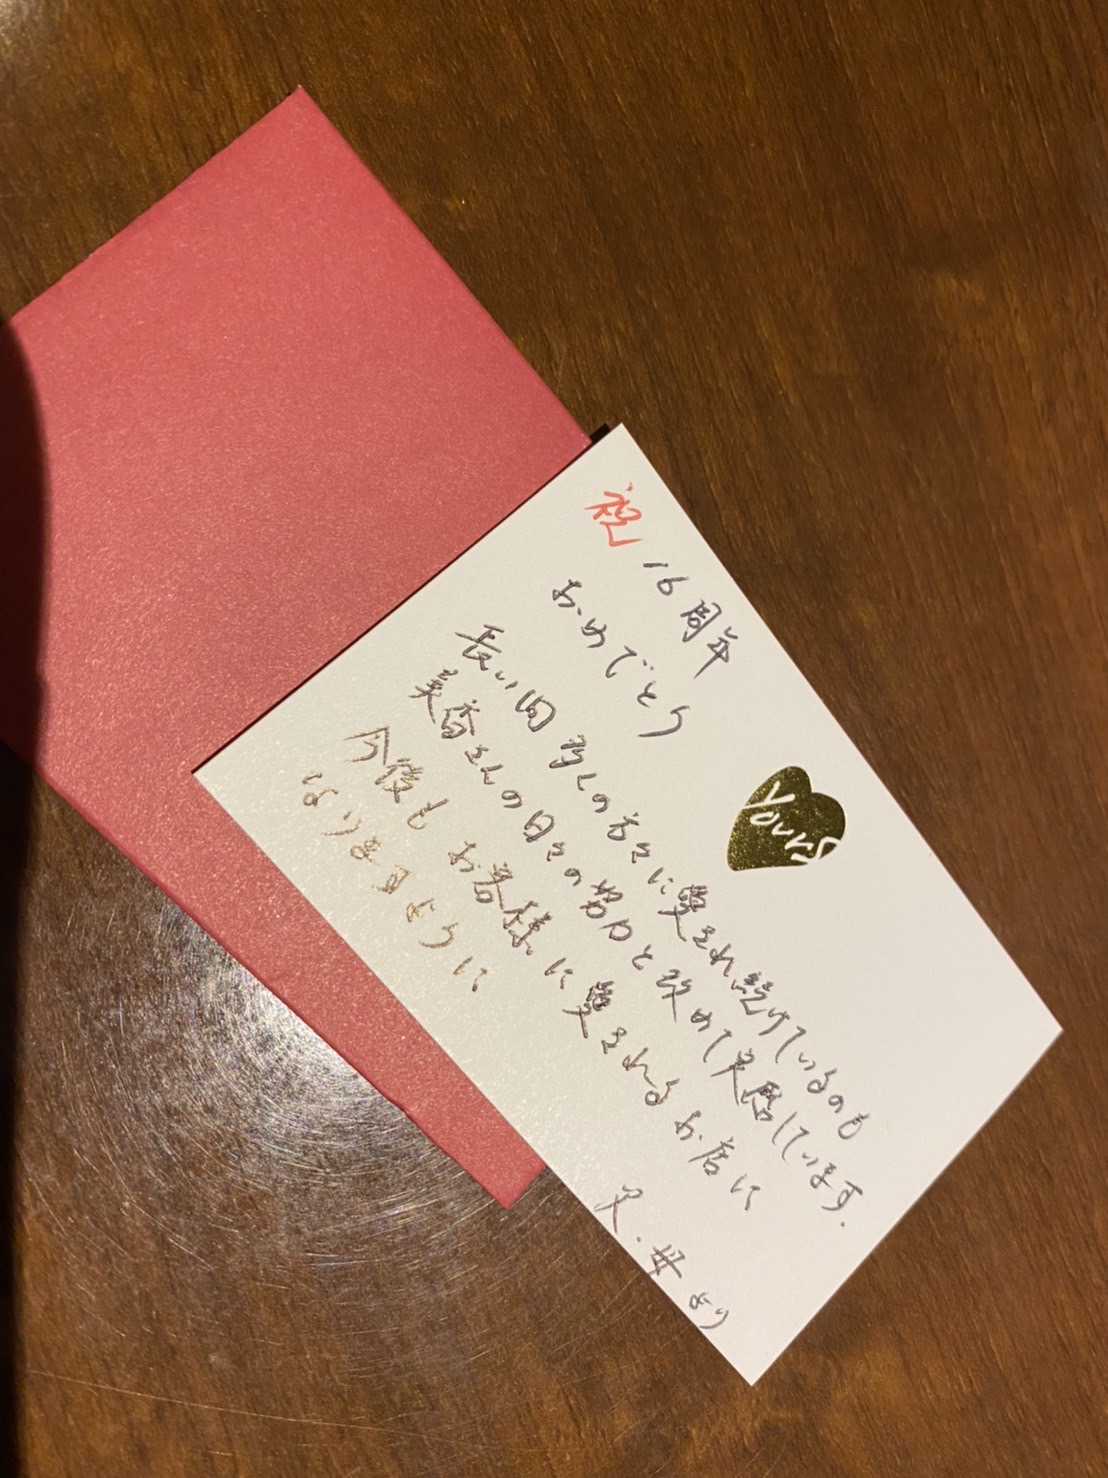 祝 16周年
おめでとう
長い間 多くの方々に愛され続けているのも
美香さんの日々の努力と改めて実感しています.
今後も お客様に愛されるお店に
なりますように
父.母より
yours